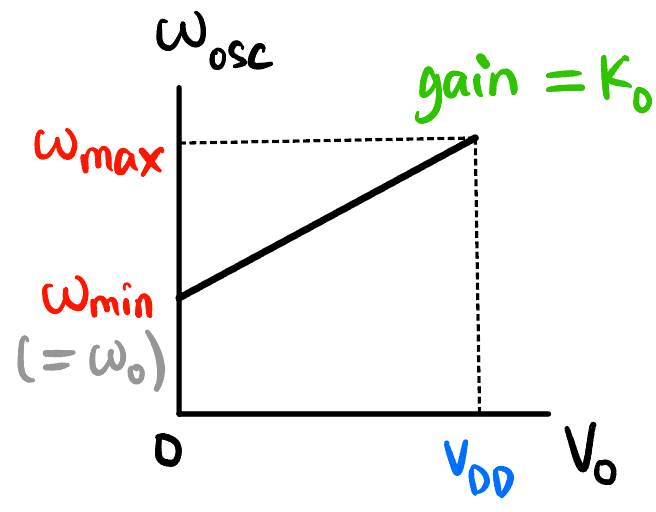 ω_osc
gain = K_o
ω_max
ω_min
(= ω_o)
0
V_DD
V_o